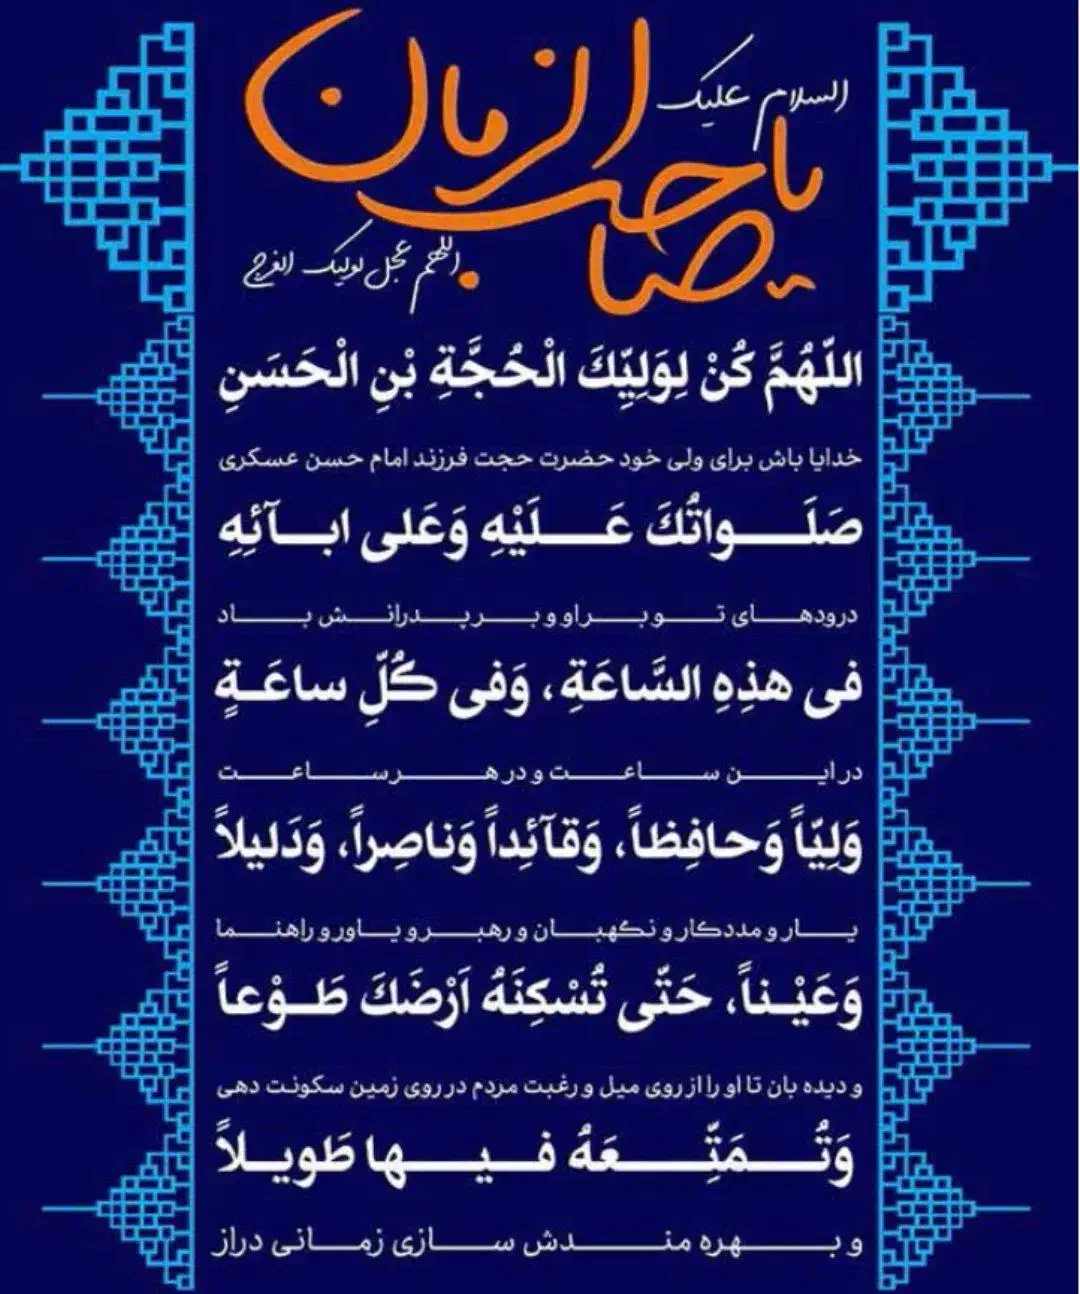 السلام علیک
یا صاحب الزمان
اللهم عجل لولیک الفرج
اللّهُمَّ كُنْ لِوَلِيِّكَ الْحُجَّةِ بْنِ الْحَسَنِ
خدایا باش برای ولی خود حضرت حجت فرزند امام حسن عسکری
صَلَــواتُكَ عَــلَيْهِ وَعَلى ابــآئِهِ
درودهــای تــو بــر او و بــر پــدرانــش بــاد
فى هذِهِ السَّاعَةِ، وَفى كُلِّ ساعَــةٍ
در ایــن ســاعــت و در هــر ســاعــت
وَلِيّاً وَحافِظاً، وَقآئِداً وَناصِراً، وَدَليلاً
یــار و مددکار و نگهبــان و رهبــر و یــاور و راهنــما
وَعَيْــناً، حَتّى تُسْكِنَهُ اَرْضَكَ طَــوْعاً
و دیده بان تا او را از روی میل و رغبت مردم در روی زمین سکونت دهی
وَتُــمَتِّــعَهُ فــيــها طَويــلاً
و بــهره منــدش ســازی زمــانی دراز